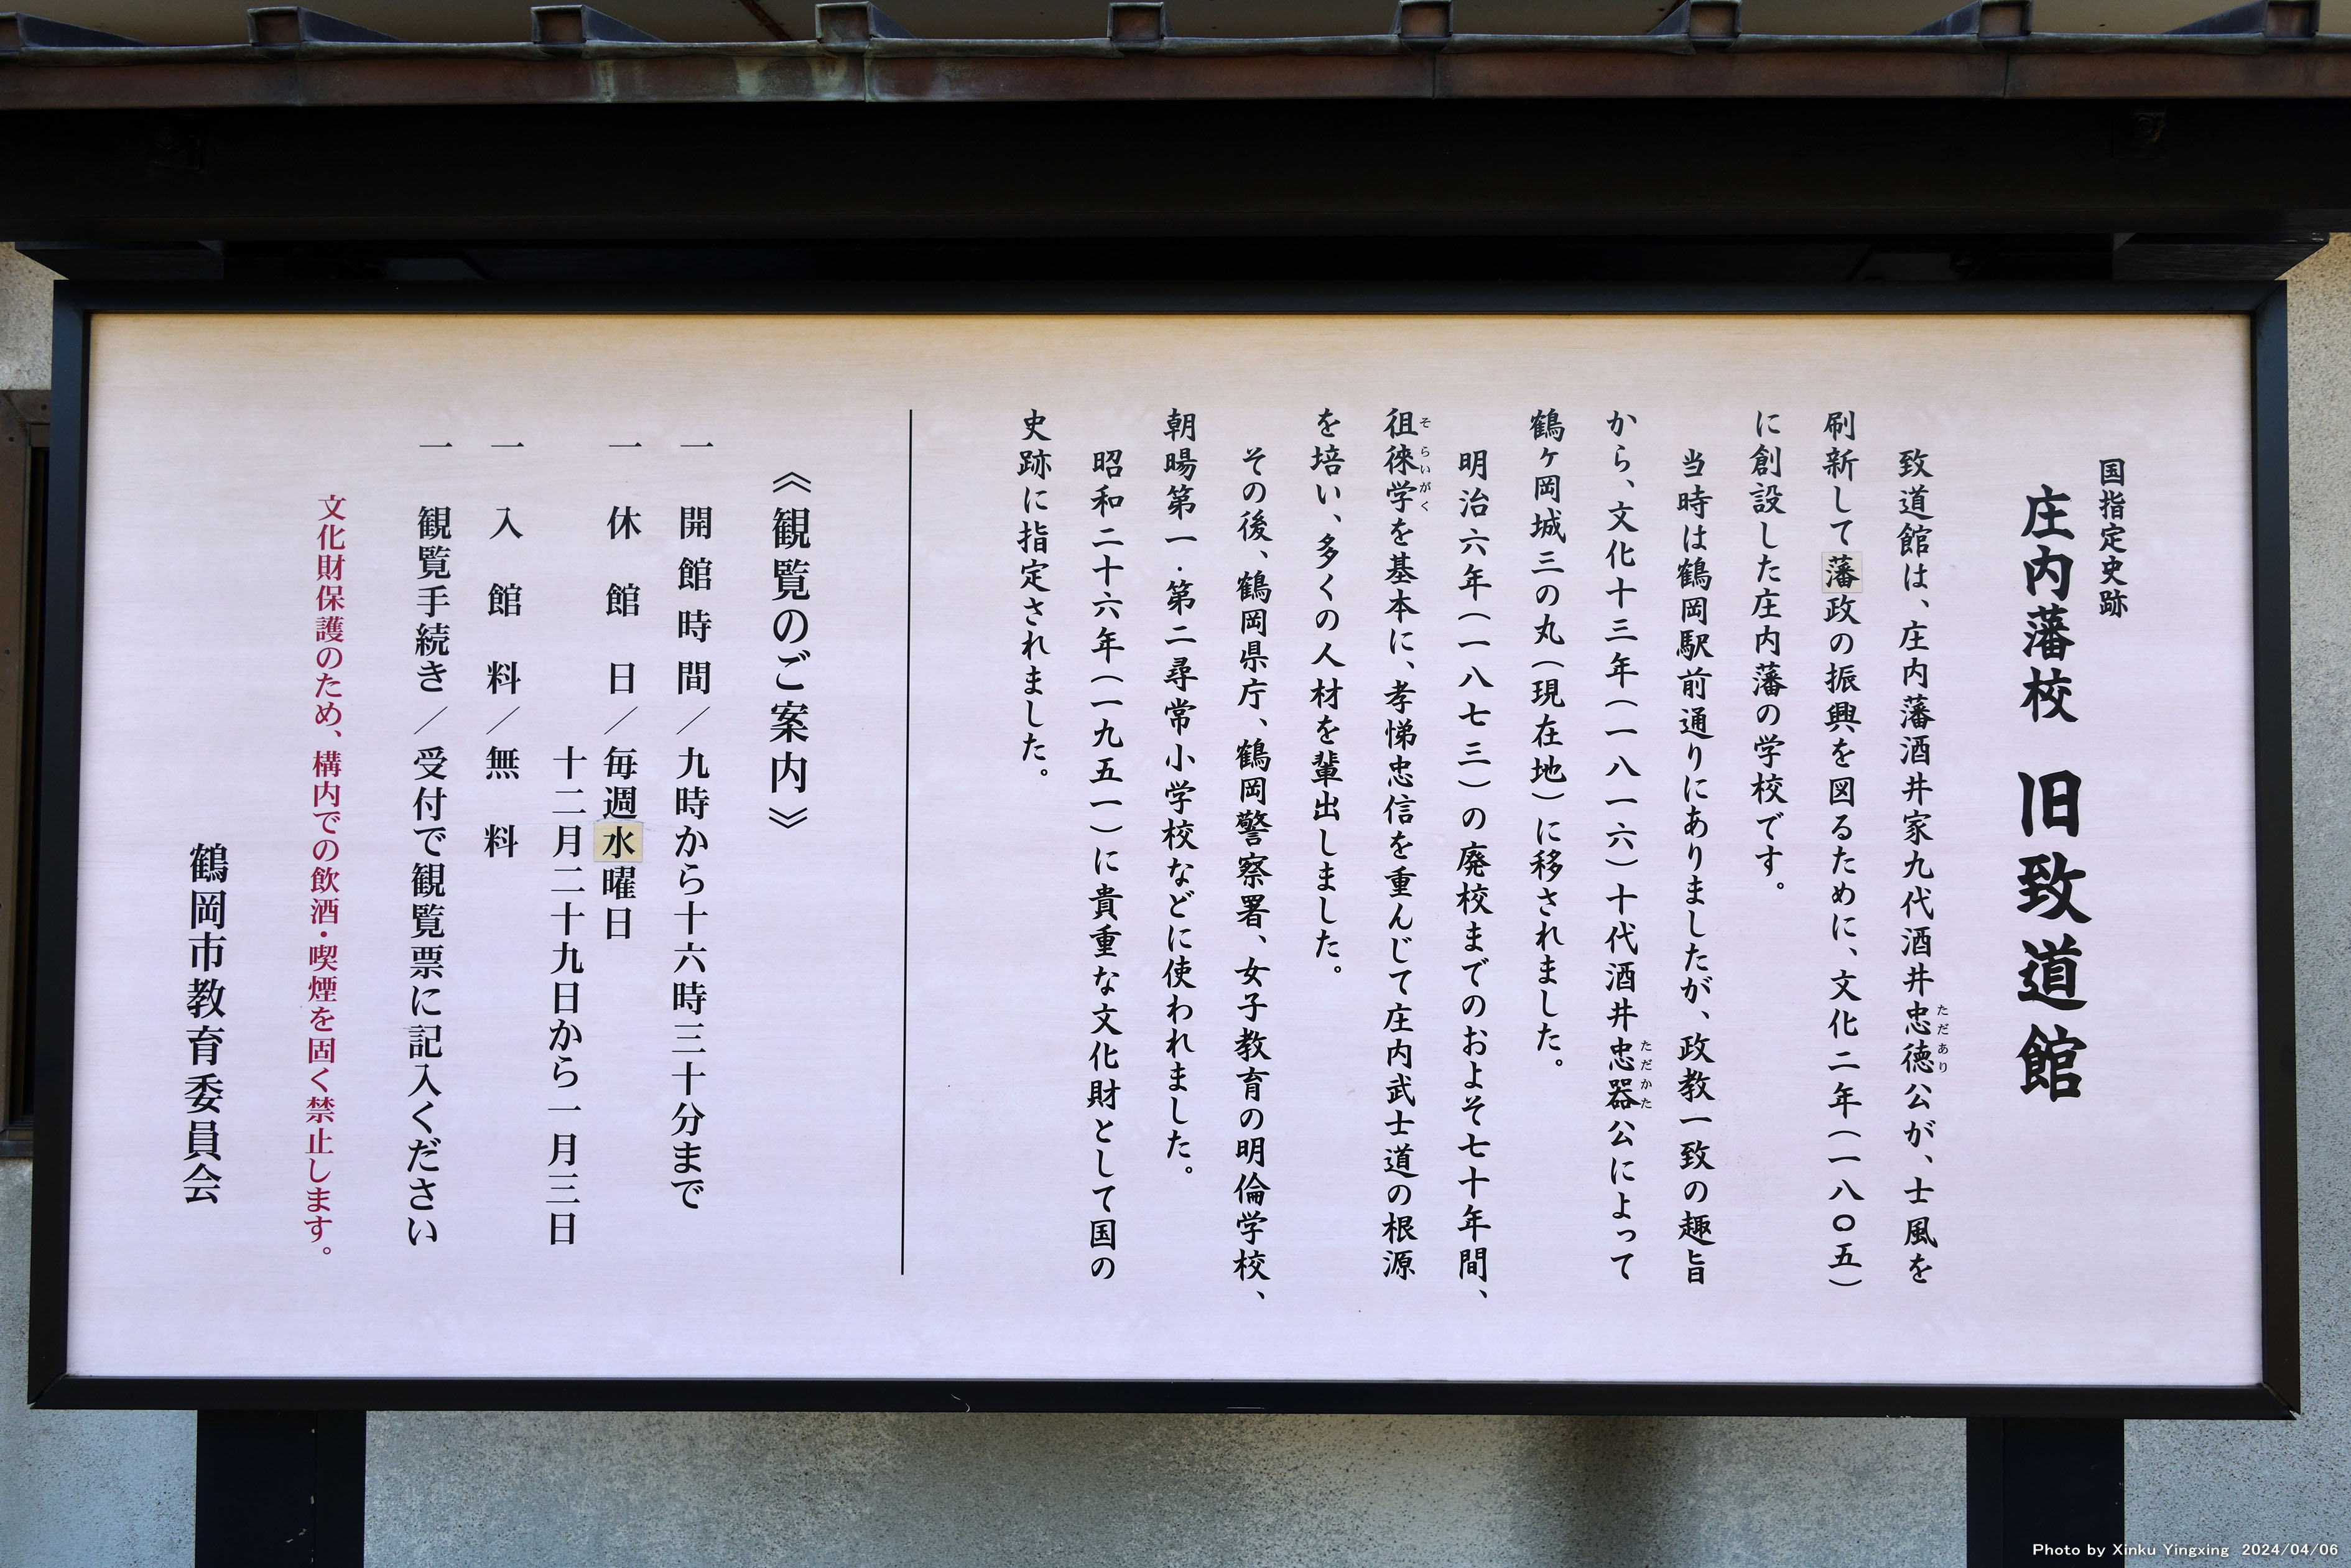 国指定史跡
庄内藩校 旧致道館
致道館は、庄内藩酒井家九代酒井忠徳公が、士風を
ただあり
刷新して藩政の振興を図るために、文化二年(一八〇五)
に創設した庄内藩の学校です。
当時は鶴岡駅前通りにありましたが、政教一致の趣旨
から、文化十三年(一八一六)十代酒井忠器公によって
ただかた
鶴ヶ岡城三の丸(現在地)に移されました。
明治六年(一八七三)の廃校までのおよそ七十年間、
徂徠学を基本に、孝悌忠信を重んじて庄内武士道の根源
そらいがく
を培い、多くの人材を輩出しました。
その後、鶴岡県庁、鶴岡警察署、女子教育の明倫学校、
朝暘第一・第二尋常小学校などに使われました。
昭和二十六年(一九五一)に貴重な文化財として国の
史跡に指定されました。
《観覧のご案内》
一 開館時間/九時から十六時三十分まで
一 休館日/毎週水曜日
十二月二十九日から一月三日
一 入館料/無料
一 観覧手続き/受付で観覧票に記入ください
文化財保護のため、構内での飲酒・喫煙を固く禁止します。
鶴岡市教育委員会
Photo by Xinku Yingxing 2024/04/06